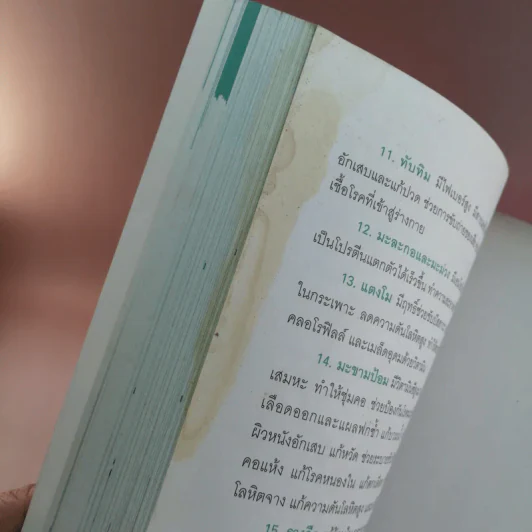 11. ทับทิม มีไฟเบอร์สูง
อักเสบและแก้ปวด ช่วยการขับถ่ายของเสีย
เชื้อโรคที่เข้าสู่ร่างกาย
12. มะละกอและมะม่วง
เป็นโปรตีนแตกตัวได้เร็วขึ้น
13. แตงโม มีฤทธิ์ช่วยขับปัสสาวะ
ในกระเพาะ ลดความดันโลหิตสูง
คลอโรฟิลล์ และเมล็ดอุดมด้วยวิตามิน
14. มะขามป้อม มีวิตามินซีสูง
เสมหะ ทำให้ชุ่มคอ ช่วยป้องกัน
เลือดออกและแผลฟกช้ำ
ผิวหนังอักเสบ แก้หวัด
คอแห้ง แก้โรคหนองใน
โลหิตจาง แก้ความดันโลหิตสูง
15.